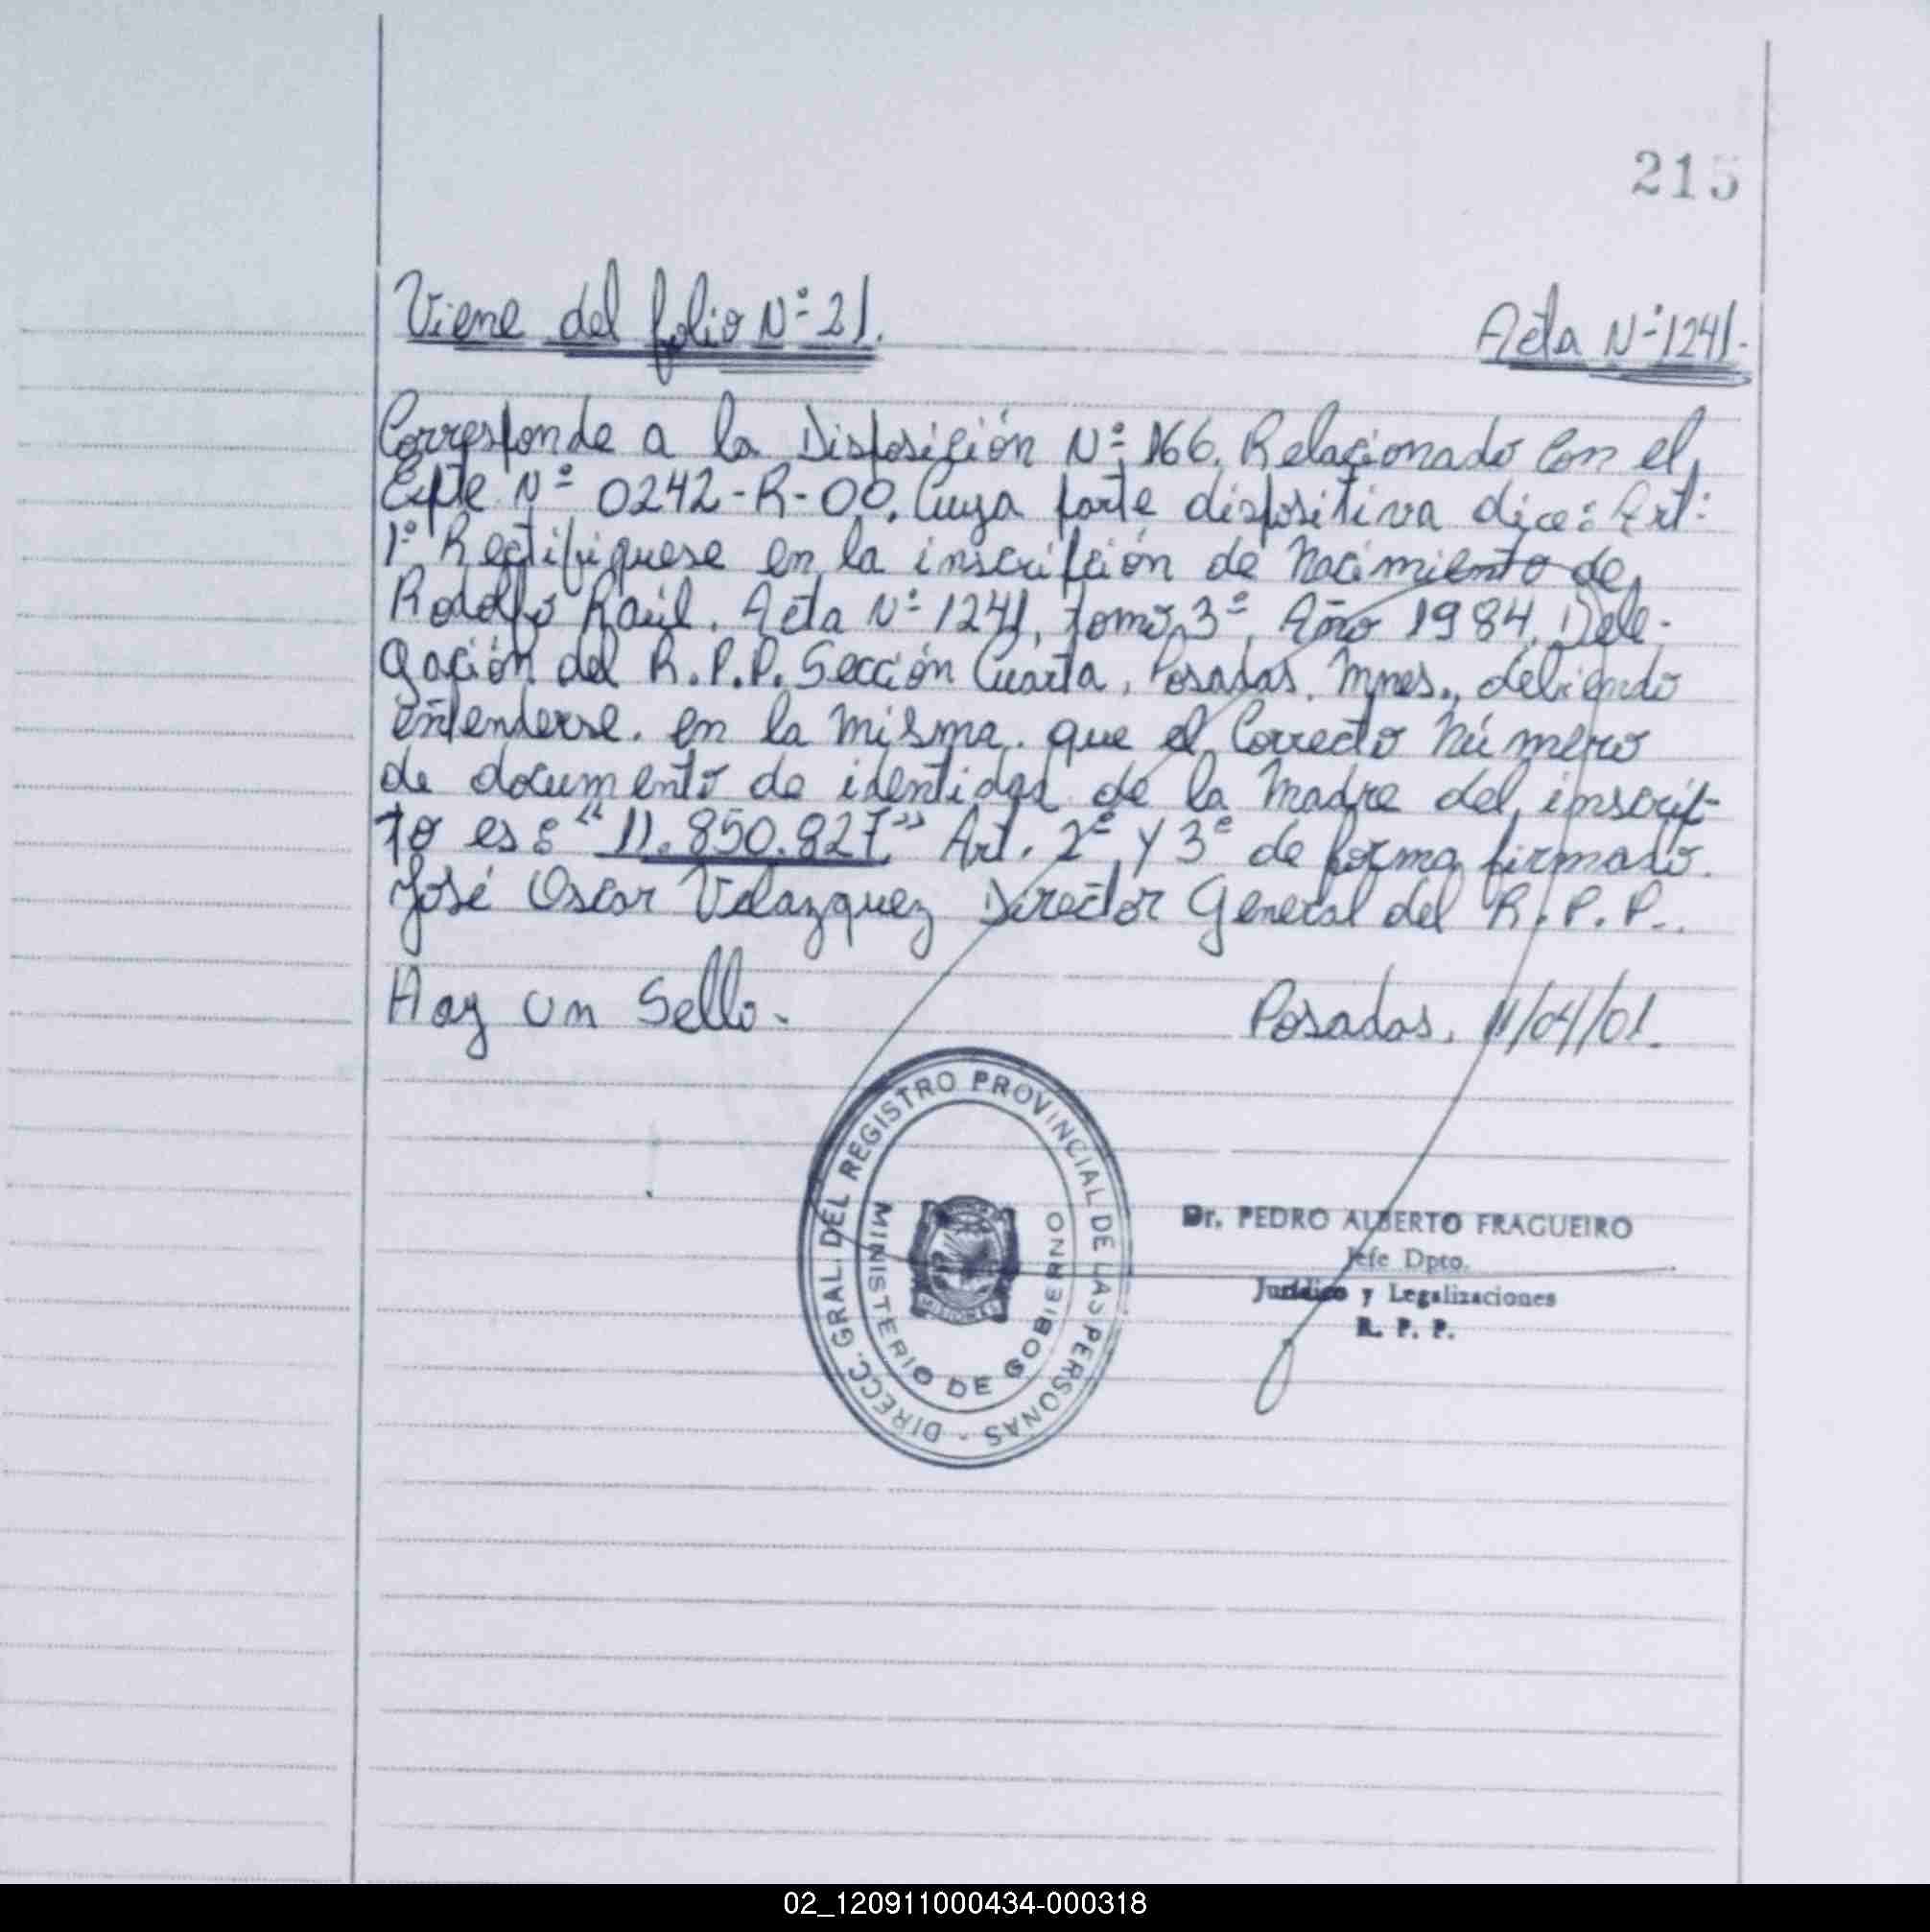 215
Viene del folio Nº 21.
Acta Nº 1241.
Corresponde a la Disposición Nº 166. Relacionado Con el
Expte Nº 0242-R-00. Cuya parte dispositiva dice: Art:
1º Rectifiquese en la inscripción de Nacimiento de
Rodolfo Raúl. Acta Nº 1241, tomo 3º, Año 1984. Dele-
gación del R.P.P. Sección Cuarta, Posadas, Mnes., debiendo
entenderse. en la Misma. que el Correcto Número
de documento de identidad de la Madre del inscrip-
to es: "11.850.827" Art. 2º y 3º de forma firmado.
José Oscar Velazquez Director General del R.P.P..
Hay un Sello.-
Posadas, 11/04/01.
DIRECC. GRAL. DEL REGISTRO PROVINCIAL DE LAS PERSONAS -
MINISTERIO DE GOBIERNO
MISIONES
Dr. PEDRO ALBERTO FRAGUEIRO
Jefe Dpto.
Jurídico y Legalizaciones
R. P. P.
02_120911000434-000318